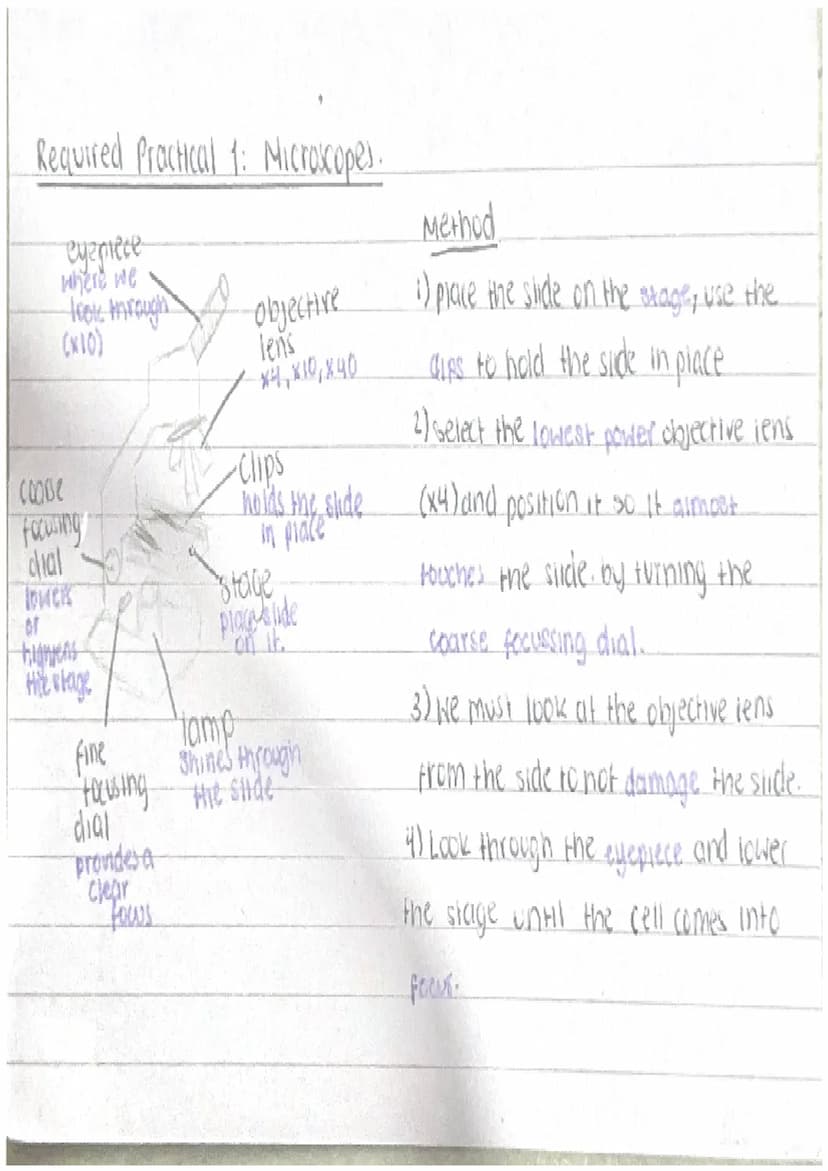 Required Practical 1: Microscopes.
eyepiece
where we
look through
(x10)
objective
lens
x4, x10, x40
clips
holds the slide
in place
coase
focusing
dial
lowers
or
highens
the stage
stage
place slide
on it.
lamp
shines through
the slide
fine
focusing
dial
provides a
clear
focus
Method
1) place the slide on the stage, use the
clips to hold the side in place
2) select the lowest power objective lens
(x4) and position it so it almost
touches the slide. by turning the
coarse focussing dial.
3) We must look at the objective lens
from the side to not damage the slide.
4) Look through the eyepiece and lower
the stage until the cell comes into
focus.